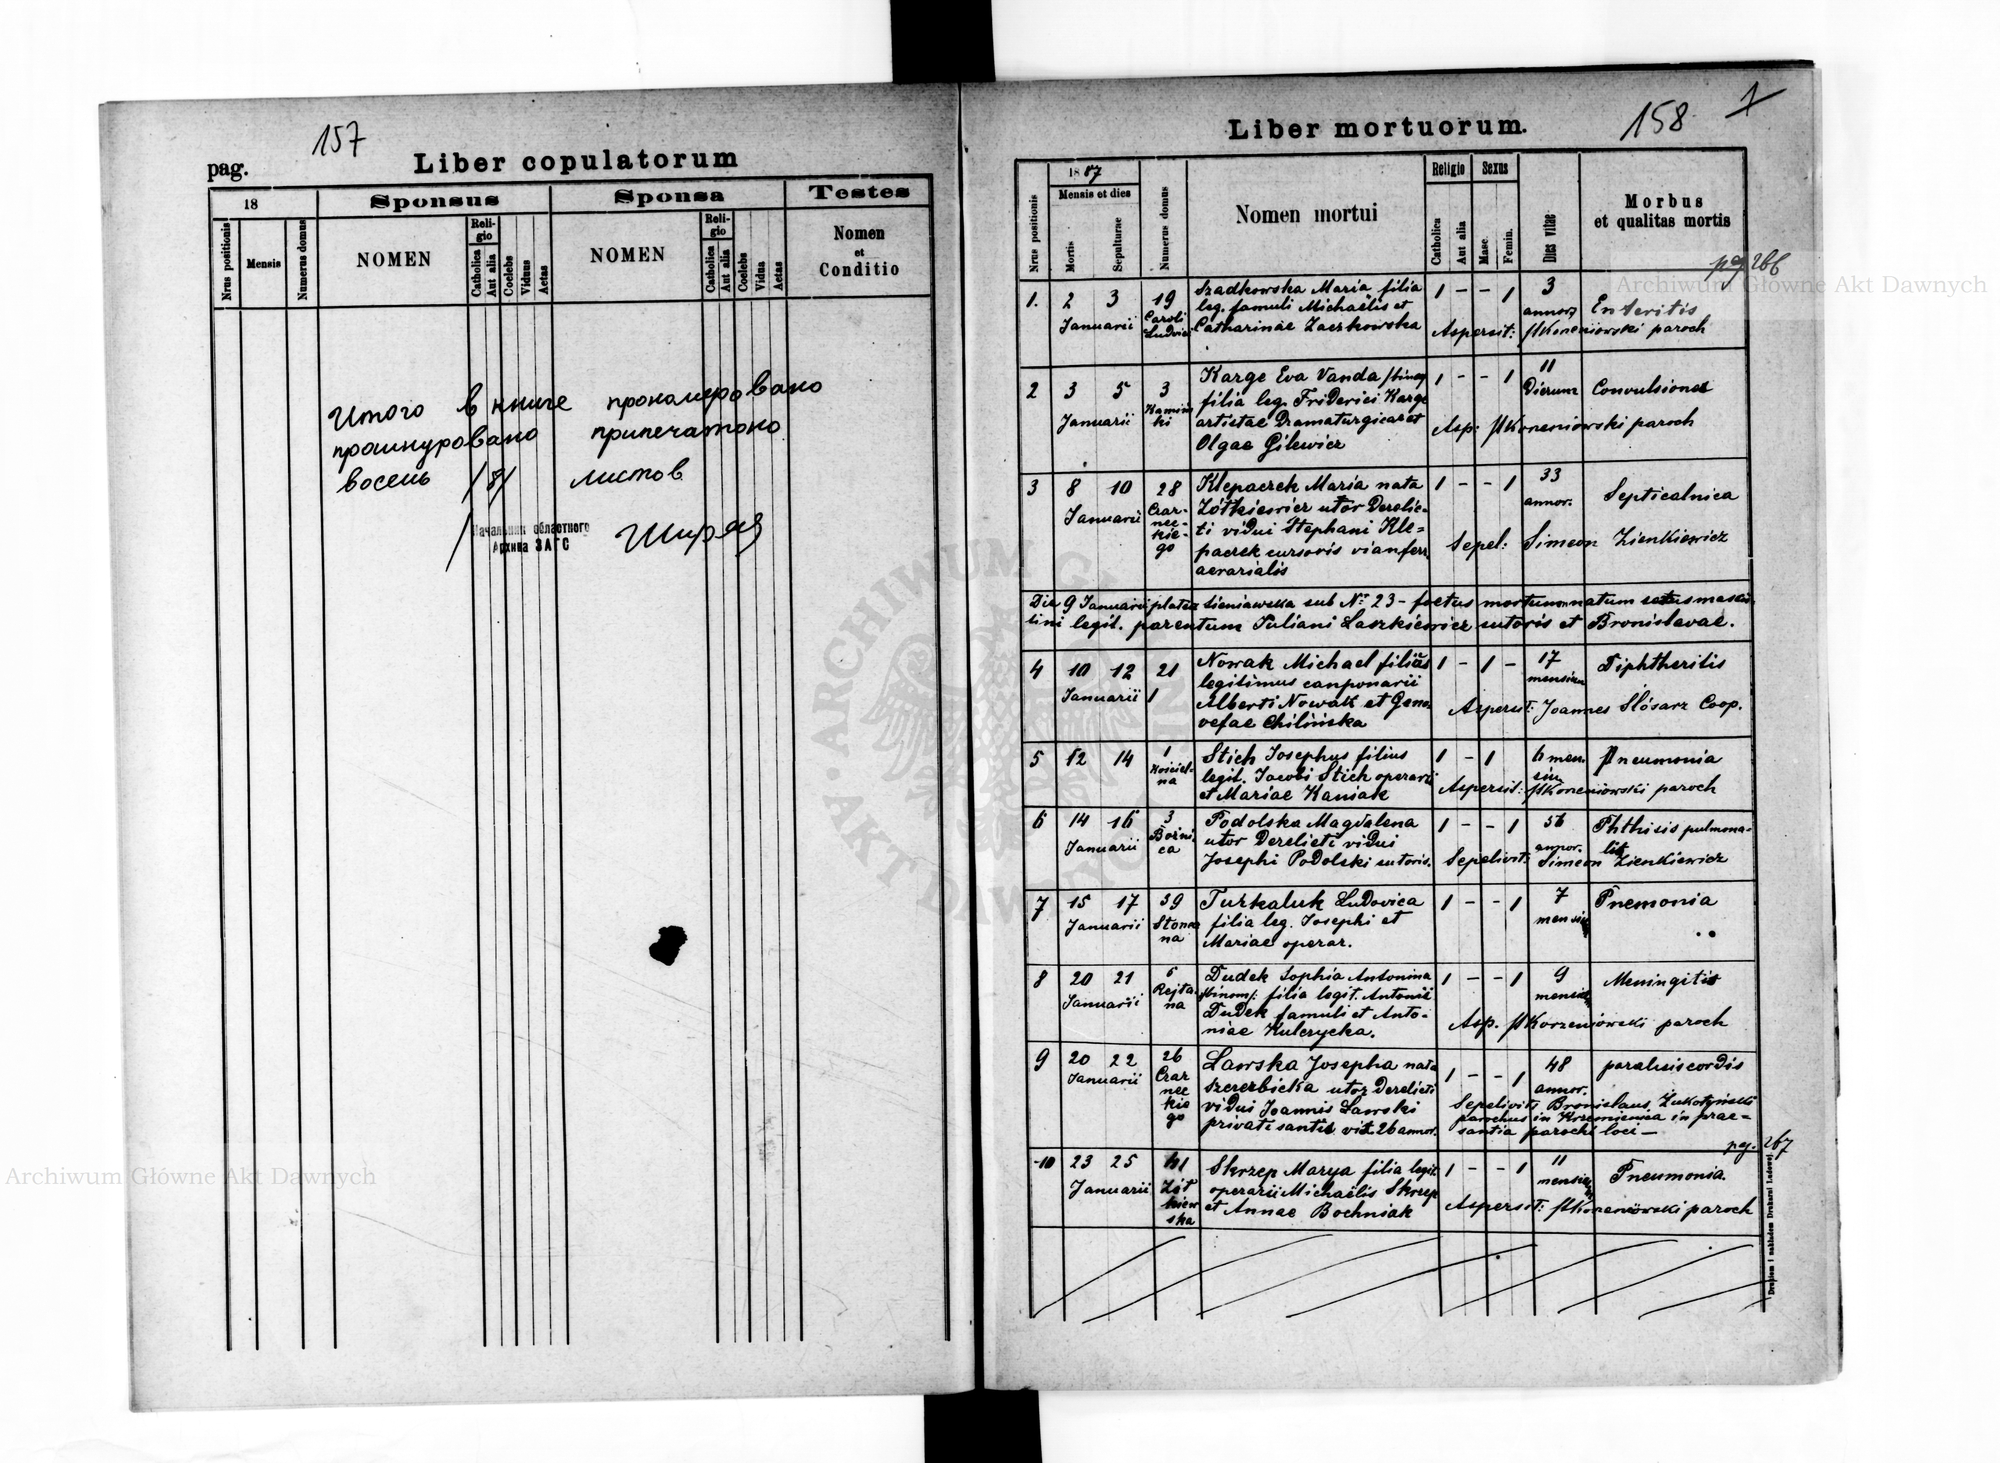 157
pag.
Liber copulatorum
18
Sponsus
Sponsa
Testes
Nrus positionis
Mensis
Numerus domus
NOMEN
Religio
Catholica
Aut alia
Coelebs
Viduus
Aetas
NOMEN
Religio
Catholica
Aut alia
Coelebs
Vidua
Aetas
Nomen
et
Conditio
Итого в книге прономеровано
прошнуровано припечатоно
восемь /8/ листов
Начальник областного
Архива ЗАГС
Liber mortuorum.
158
1
Nrus positionis
1887
Mensis et dies
Mortis
Sepulturae
Numerus domus
Nomen mortui
Religio
Catholica
Aut alia
Sexus
Masc.
Femin.
Dies vitae
Morbus
et qualitas mortis
pag 266
1. 2 3 19 Szadkowska Maria filia 1 - - 1 3
Januarii Caroli leg. famuli Michaëlis et annor. Enteritis
Ludvici Catharinae Zaczkowska Aspersit: Korzeniowski paroch
2 3 5 3 Karge Eva Vanda /binom 1 - - 1 11
Januarii filia leg. Friderici Karge Dierum Convulsiones
artistae Dramaturgicae et Asp: Korzeniowski paroch
Olgae Gilewicz
3 8 10 28 Klepaczek Maria nata 1 - - 1 33
Januarii Czar- Żółkiewicz uxor Derelic- annor. Septicalnica
nec- ti vidui Stephani Kle-
kie- paczek cursoris vianferr. Sepel: Simeon Zienkiewicz
go aerarialis
Die 9 Januarii platea Sieniawska sub Nr 23 - foetus mortuum natum sexus mascu-
lini legit. parentum Juliani Laszkiewicz sutoris et Bronislavae.
4 10 12 21 Nowak Michael filius 1 - 1 - 17 Diphtheritis
Januarii 1 legitimus cauponarii mensium
Alberti Nowak et Geno- Aspersit: Joannes Slósarz Coop.
vefae Chilińska
5 12 14 1 Stich Josephus filius 1 - 1 6 men- Pneumonia
Kościel- legit. Jacobi Stich operarii sium
na et Mariae Kaniak Aspersit: Korzeniowski paroch
6 14 16 3 Podolska Magdalena 1 - - 1 56 Phthisis pulmona-
Januarii Bożni- uxor Derelicti vidui annor. lis
ca Josephi Podolski sutoris. Sepelivit: Simeon Zienkiewicz
7 15 17 39 Turkaluk Ludovica 1 - - 1 7 Pnemonia
Januarii filia leg. Josephi et mensium
na Mariae operar.
8 20 21 5 Dudek Sophia Antonina 1 - - 1 9 Meningitis
Januarii Rejta- /binom/: filia legit. Antonii mensium
na Dudek famuli et Anto- Asp. Korzeniowski paroch
niae Kulczycka.
9 20 22 26 Lawska Josepha nata 1 - - 1 48 paralisis cordis
Januarii Czar Szczerbicka uxor Derelicti annor.
nec vidui Joannis Lawski Sepelivit: Bronislaus Zukotyński
kie privatisantis vix 26 annor. parochus in Krzemienica in prae-
go santia parochi loci -
pg. 267
10 23 25 Skrzep Marya filia legit. 1 - - 1 11 Pneumonia.
Januarii Żół operarii Michaëlis Skrzep mensium
kiew et Annae Bochniak Aspersit: Korzeniowski paroch
ska
Drukiem i nakładem Drukarni Ludowej.
Archiwum Główne Akt Dawnych
Archiwum Główne Akt Dawnych
ARCHIWUM GŁÓWNE AKT DAWNYCH